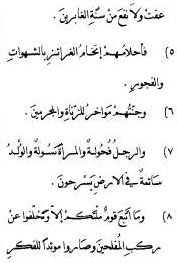 عفت ولا نفع من سنّة الغابرين .
٥) فأحلامهم إتخام الغرائز بالشهوات
والفجور .
٦) وجنّتهم مواخر للزناة والمجرمين .
٧) والرجل فحولة والمرأة نسولة والولد
سائمة في الارض يسرحون .
٨) وما اتبع قوم ملتكم إلا وتخلفوا عن
ركب المفلحين وصاروا موئدا للفكر